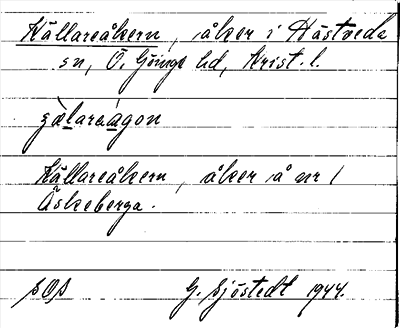 Källareåkern, åker i Hästveda
sn, Ö. Göinge hd, Krist. l.
Källareåkern, åker å nr 1
Äskeberga.
SOS G. Sjöstedt 1944.